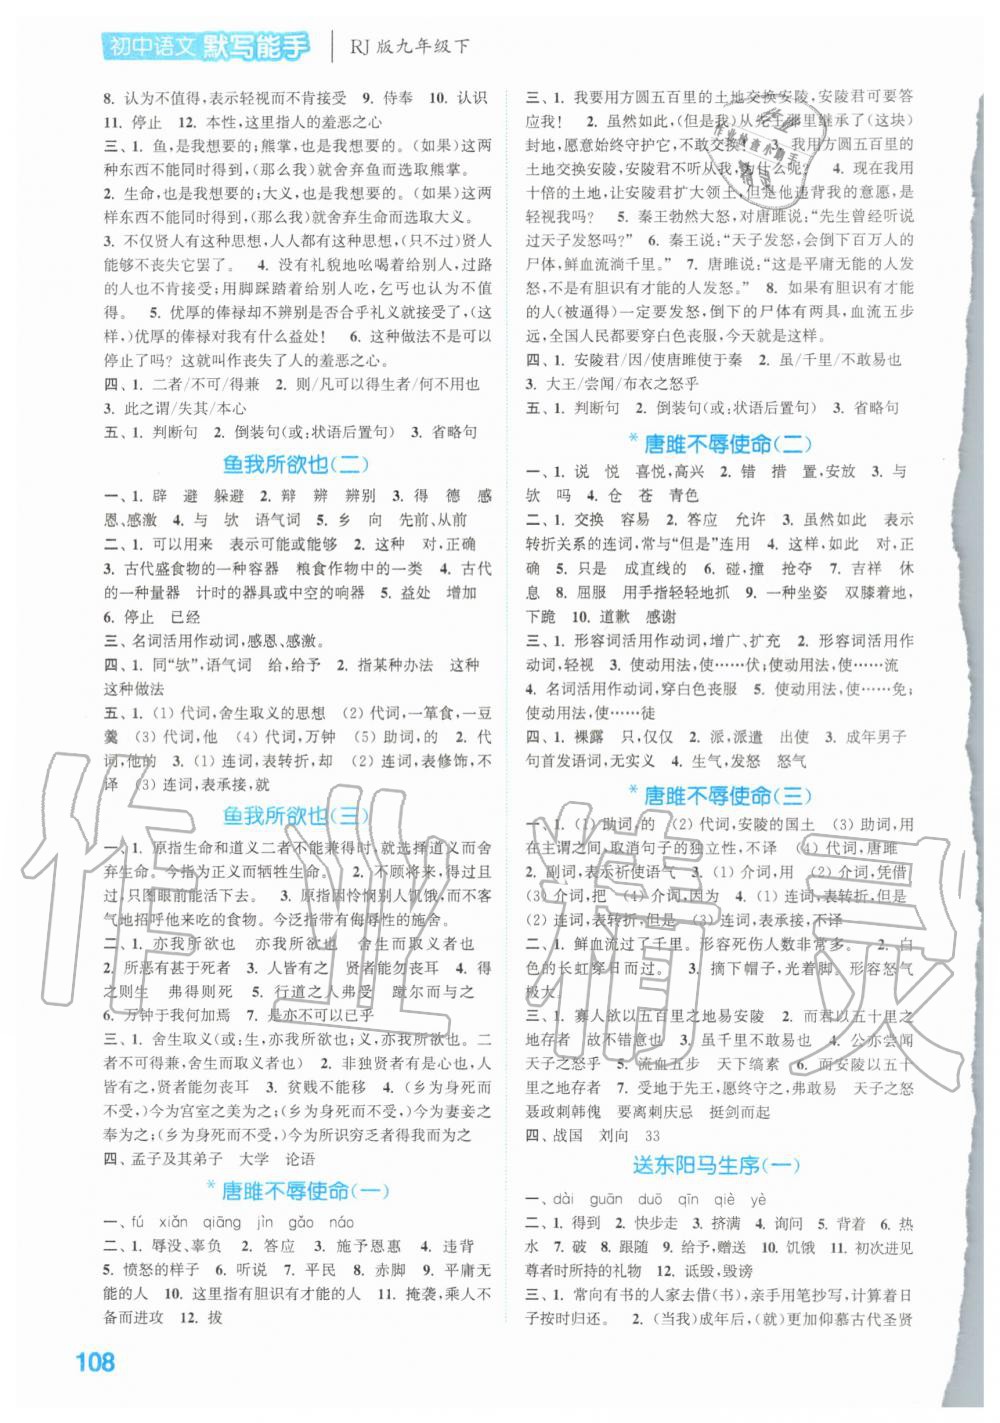 初中语文 默写能手 RJ版九年级下
8. 认为不值得,表示轻视而不肯接受 9. 侍奉 10. 认识
11. 停止 12. 本性,这里指人的羞恶之心
三、1. 鱼,是我想要的;熊掌,是我想要的。(如果)这两
种东西不能同时得到,(那么我)就舍弃鱼而选取熊掌。
2. 生命,也是我想要的;大义,也是我想要的。(如果)这两
样东西不能同时得到,(那么我)就舍弃生命而选取大义。
3. 不仅贤人有这种思想,人人都有这种思想,(不过)贤人
能够不丧失它罢了。 4. 没有礼貌地吆喝着给别人,过路
的人也不会接受;用脚踩踏着给别人,乞丐也不认为它是
值得的。 5. 优厚的俸禄却不辨别是否合乎礼义就接受了,(这
样,)优厚的俸禄对我有什么益处! 6. 这种做法不可以
停止了吗?这就叫作丧失了人的羞恶之心。
四、1. 二者/不可/得兼 2. 则/凡可以得生者/何不用也
3. 此之谓/失其/本心
五、1. 判断句 2. 倒装句(或:状语后置句) 3. 省略句
鱼我所欲也(二)
一、1. 辟 避 躲避 2. 辩 辨 辨别 3. 得 德 感
恩、感激 4. 与 欤 语气词 5. 乡 向 先前、从前
二、1. 可以用来 表示可能或能够 2. 这种 对,正确
3. 古代盛食物的一种容器 粮食作物中的一类 4. 古代
的一种量器 计时的器具或中空的响器 5. 益处 增加
6. 停止 已经
三、名词活用作动词,感恩、感激。
四、1. 同“欤”,语气词 给,给予 2. 指某种办法 这种
这种做法
五、1. (1) 代词,舍生取义的思想 (2) 代词,一箪食,一豆
羹 (3) 代词,他 (4) 代词,万钟 (5) 助词,的 2. 代
词,他的 3. (1) 连词,表转折,却 (2) 连词,表修饰,不
译 (3) 连词,表承接,就
鱼我所欲也(三)
一、1. 原指生命和道义二者不能兼得时,就选择道义而舍
弃生命。今指为正义而牺牲生命。 2. 不顾将来,得过且
过,只图眼前能生活下去。 3. 原指因怜悯别人饥饿,而不客
气地招呼他来吃的食物。今泛指带有侮辱性的施舍。
二、1. 亦我所欲也 亦我所欲也 舍生而取义者也
2. 所恶有甚于死者 3. 人皆有之 贤者能勿丧耳 4. 得
之则生 弗得则死 5. 行道之人弗受 蹴尔而与之
6. 万钟于我何加焉 7. 是亦不可以已乎
三、1. 舍生而取义(或:生,亦我所欲也;义,亦我所欲也。二
者不可得兼,舍生而取义者也) 2. 非独贤者有是心也,人
皆有之,贤者能勿丧耳 3. 贫贱不能移 4. (乡为身死而
不受,)今为宫室之美为之;(乡为身死而不受,)今为妻妾之
奉为之;(乡为身死而不受,)今为所识穷乏者得我而为之
四、孟子及其弟子 大学 论语
*唐雎不辱使命(一)
一、fú xiǎn qiāng jìn gǎo náo
二、1. 辱没、辜负 2. 答应 3. 施予恩惠 4. 违背
5. 愤怒的样子 6. 听说 7. 平民 8. 赤脚 9. 平庸无
能的人 10. 这里指有胆识有才能的人 11. 掩袭,乘人不备
而进攻 12. 拔
108
三、1. 我要用方圆五百里的土地交换安陵,安陵君可要答
应我! 2. 虽然如此,(但是)我从先王那里继承了(这块)
封地,愿意始终守护它,不敢交换! 3. 我用方圆五百里的
土地交换安陵,安陵君不听从我,为什么? 4. 现在我用
十倍的土地,让安陵君扩大领土,但是他违背我的意愿,是
轻视我吗? 5. 秦王勃然大怒,对唐雎说:“先生曾经听说
过天子发怒吗?” 6. 秦王说:“天子发怒,会倒下百万人的
尸体,鲜血流淌千里。” 7. 唐雎说:“这是平庸无能的人发
怒,不是有胆识有才能的人发怒。” 8. 如果有胆识有才能
的人(被逼得)一定要发怒,倒下的尸体有两具,血流五步
远,全国人民都要穿白色丧服,今天就是这样。
四、1. 安陵君/因/使唐雎使于秦 2. 虽/千里/不敢易也
3. 大王/尝闻/布衣之怒乎
五、1. 判断句 2. 倒装句(或:状语后置句) 3. 省略句
*唐雎不辱使命(二)
一、1. 说 悦 喜悦,高兴 2. 错 措 置,安放 3. 与
欤 吗 4. 仓 苍 青色
二、1. 交换 容易 2. 答应 允许 3. 虽然如此 表示
转折关系的连词,常与“但是”连用 4. 这样,如此 对,正
确 5. 只是 成直线的 6. 碰,撞 抢夺 7. 吉祥 休
息 8. 屈服 用手指轻轻地抓 9. 一种坐姿 双膝着地,
下跪 10. 道歉 感谢
三、1. 形容词活用作动词,增广、扩充 2. 形容词活用作
动词,轻视 3. 使动用法,使……伏;使动用法,使……流
4. 名词活用作动词,穿白色丧服 5. 使动用法,使……免;
使动用法,使……徒
四、1. 裸露 只,仅仅 2. 派,派遣 出使 3. 成年男子
句首发语词,无实义 4. 生气,发怒 怒气
*唐雎不辱使命(三)
一、1. (1) 助词,的 (2) 代词,安陵的国土 (3) 助词,用
在主谓之间,取消句子的独立性,不译 (4) 代词,唐雎
2. 副词,表示祈使语气 3. (1) 介词,用 (2) 介词,凭借
(3) 介词,把 (4) 介词,因为 4. (1) 连词,表转折,但是
(2) 连词,表转折,却 (3) 连词,表承接,不译
二、1. 鲜血流过了千里。形容死伤人数非常多。 2. 白
色的长虹穿日而过。 3. 摘下帽子,光着脚。形容怒气
极大。
三、1. 寡人欲以五百里之地易安陵 2. 而君以五十里之
地存者 故不错意也 3. 虽千里不敢易也 4. 公亦尝闻
天子之怒乎 5. 流血五步 天下缟素 6. 而安陵以五
十里之地存者 7. 受地于先王,愿终守之,弗敢易 天子之怒
聂政刺韩傀 要离刺庆忌 挺剑而起
四、战国 刘向 33
送东阳马生序(一)
一、dài guān duō qīn qiè yè
二、1. 得到 2. 快步走 3. 挤满 4. 询问 5. 背着 6. 热
水 7. 破 8. 跟随 9. 给予,赠送 10. 饥饿 11. 初次进见
尊者时所持的礼物 12. 诋毁,毁谤
三、1. 常向有书的人家去借(书),亲手用笔抄写,计算着日
子按时归还。 2. (当我)成年后,(就)更加仰慕古代圣贤
作业精灵